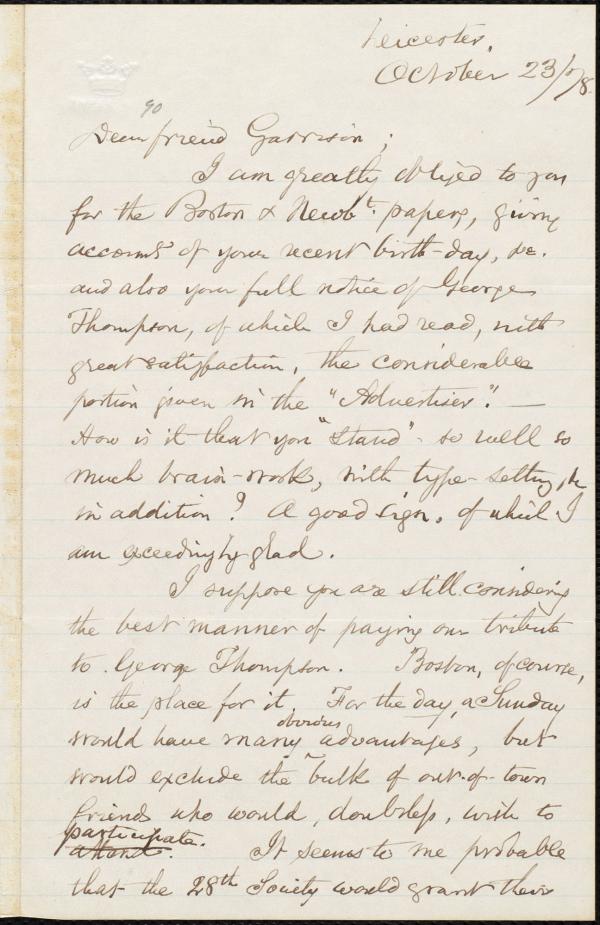 Leicester,
October 23/78.
90
Dear friend Garrison;
I am greatly obliged to you
for the Boston & Newbt. papers, giving
accounts of your recent birth-day, &c.
and also your full notice of George
Thompson, of which I had read, with
great satisfaction, the considerable
portion given in the "Advertiser". —
How is it that you "stand" so well so
much brain-work, with type-setting, &c
in addition? A good sign, of which I
am exceedingly glad.
I suppose you are still considering
the best manner of paying our tribute
to George Thompson. Boston, of course,
is the place for it. For the day, a Sunday
would have many obvious advantages, but
would exclude the bulk of out-of-town
friends who would, doubtless, wish to
participate.
attend. It seems to me probable
that the 28th Society would grant their